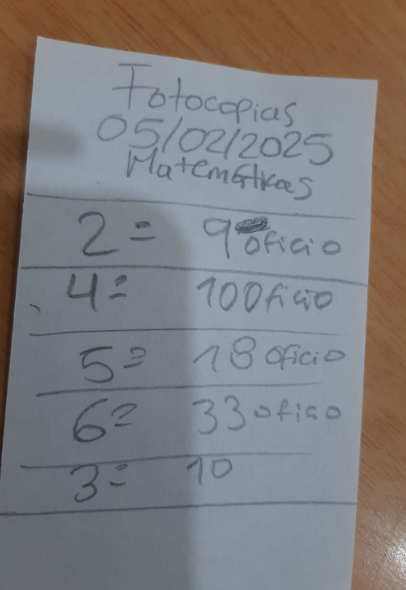 Fotocopias
05/02/2025
Matemáticas
2= 9 oficio
4= 10 oficio
5= 18 oficio
6= 33 oficio
3= 10